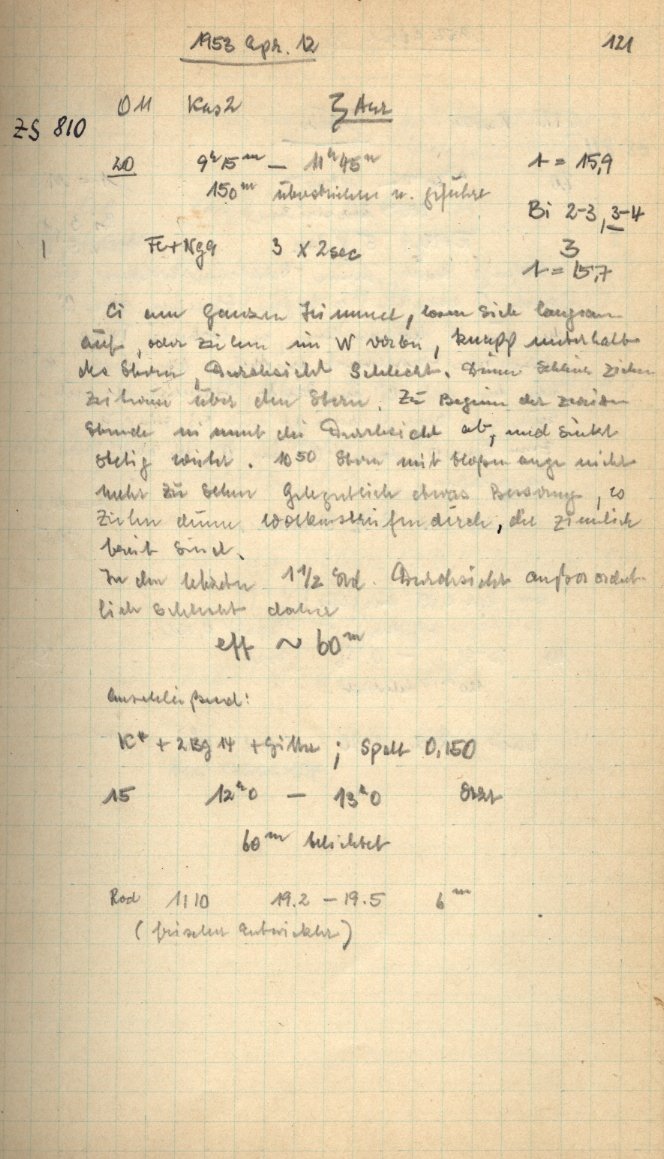 1953 Apr. 12 121
ZS 810
O II Kas 2 ζ Aur
20 9ʰ15ᵐ — 11ʰ45ᵐ t = 15,9
150ᵐ überstrichen u. geführt
Bi 2-3, 3-4
3
1 Fe + 3 x 2 sec
t = 15,7
Ci am ganzen Himmel, lösen sich langsam
auf, oder ziehen im W vorbei, knapp unterhalb
des Sterns, Durchsicht schlecht. Dünne Schleier ziehen
zeitweise über den Stern. Zu Beginn der zweiten
Stunde nimmt die Durchsicht ab, und sinkt
stetig weiter. 10⁵⁰ Stern mit bloßem Auge nicht
mehr zu sehen Gelegentlich etwas Besserung, es
ziehen dünne Wolkenstreifen durch, die ziemlich
breit sind.
In den letzten 1 1/2 Std. Durchsicht außerordent-
lich schlecht daher
eff ~ 60ᵐ
anschließend:
+ 2 Bg 14 + Gitter ; Spalt 0,150
15 12ʰ0 — 13ʰ0
60ᵐ belichtet
Rod 1:10 19.2 — 19.5 6ᵐ
(frischer Entwickler)